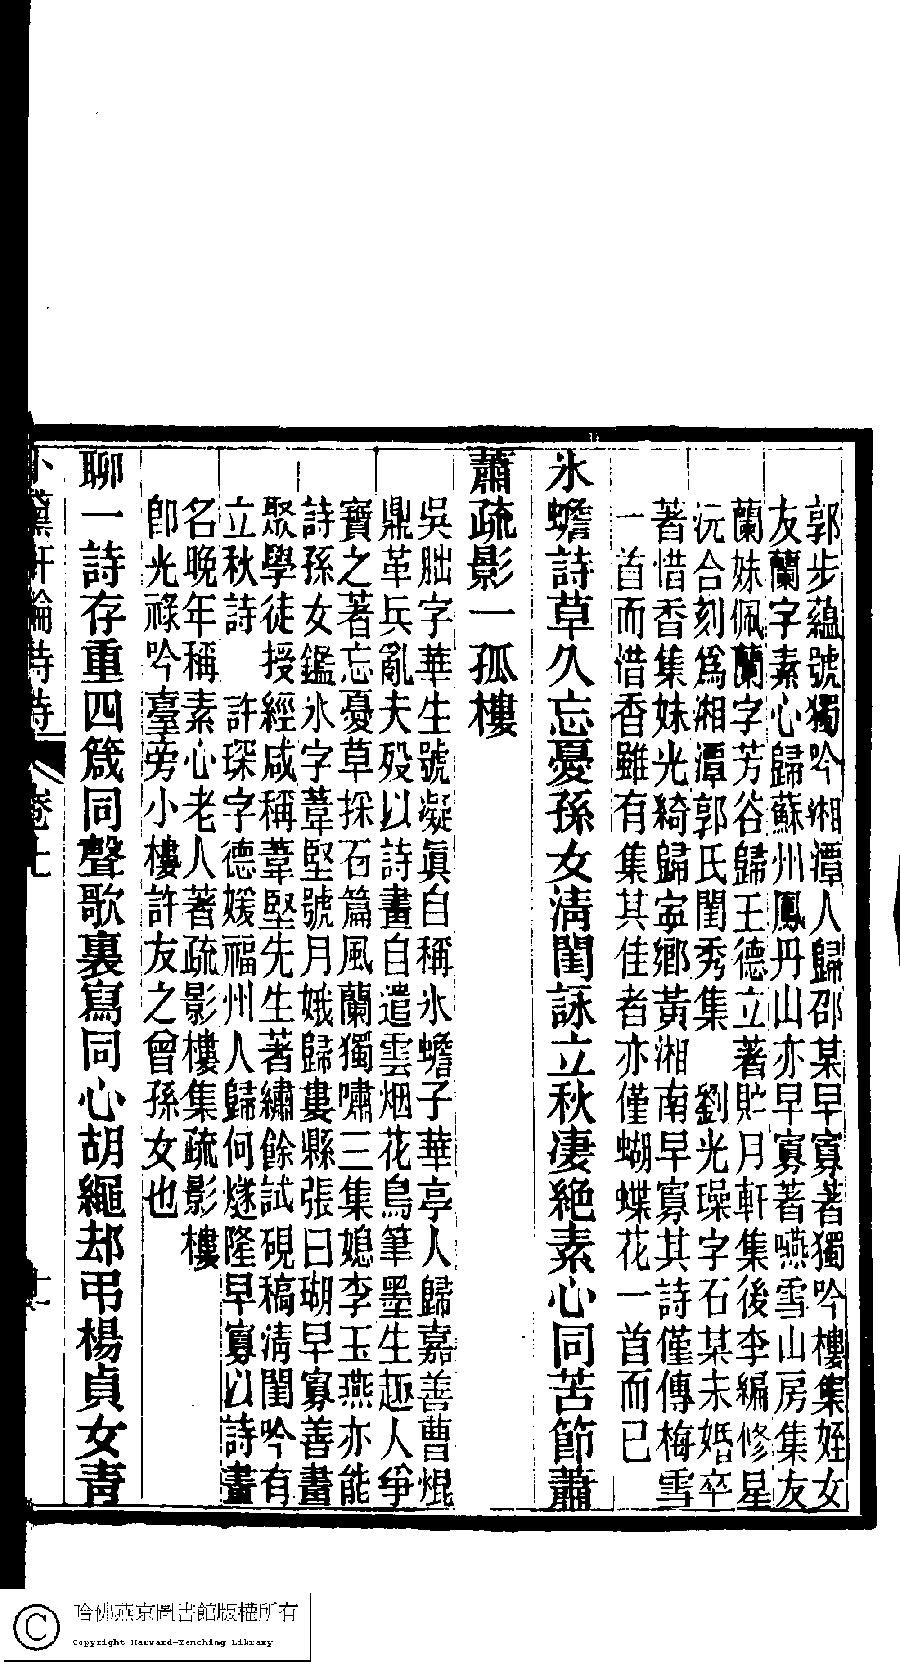 郭步蘊號獨吟湘潭人歸邵某早寡著獨吟樓集姪女
友蘭字素心歸蘇州鳳丹山亦早寡著嚥雪山房集友
蘭妹佩蘭字芳谷歸王德立著貯月軒集後李編修星
沅合刻爲湘潭郭氏閨秀集　劉光璪字石某未婚卒
著惜香集妹光綺歸寧鄉黃湘南早寡其詩僅傳梅雪
一首而惜香雖有集其佳者亦僅蝴蝶花一首而已
氷蟾詩草久忘憂孫女淸閨詠立秋凄絕素心同苦節蕭
蕭疏影一孤樓
吳朏字華生號凝眞自稱氷蟾子華亭人歸嘉善曹焜
鼎革兵亂夫歿以詩畫自遣雲烟花鳥筆墨生趣人爭
寶之著忘憂草採石篇風蘭獨嘯三集媳李玉燕亦能
詩孫女鑑氷字葦堅號月娥歸婁縣張曰瑚早寡善畫
聚學徒授經咸稱葦堅先生著繡餘試硯稿淸閨吟有
立秋詩　許琛字德媛福州人歸何燧隆早寡以詩畫
名晚年稱素心老人著疏影樓集疏影樓
卽光祿吟臺旁小樓許友之曾孫女也
聊一詩存重四箴同聲歌裏寫同心胡繩却弔楊貞女靑
小黛軒論詩詩
卷七
哈佛燕京圖書館版權所有
Copyright Harvard-Yenching Library